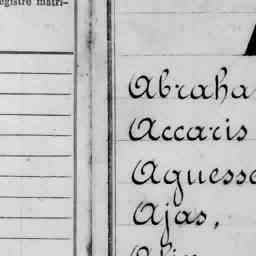 egistre matri-
Abraha
Accaris
Aguesse
Ajas,